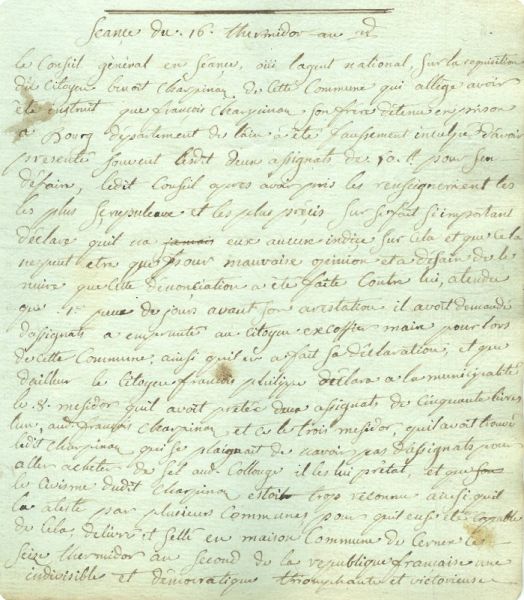 Seance du 16 thermidor an 2d
le Consil général en Seance, oüi lagent national, Sur la requisition
du Citoyen benoit Charpinaz de Cette Commune qui allege avoir
été instruit que françois Charpinaz Son frere détenu en prison
a Bourg departement de lain a été faussement inculpé d'avoir
presenté Souvent Lesdit deux assignats de 50 ₶ pour Sen
défaire, ledit Conseil apres avoir pris les renseignement les
les plus Scrupuleux et les plus précis Sur Se fait Si important
déclare quil na jamais eux aucune indice Sur Cela et que Cela
ne peut etre que pour mauvaise opinion et a désir de le
nuire que Cette dénonciation a été faite Contre lui, atendu
que peux de jours avant Son arestation il avoit demandé
dassignats a emprunté au Citoyen excoffier maire pour lors
de Cette Commune, ainsi quil en a fait Sa déclaration; et que
dailleur le Citoyen françois philippe déclara a la municipalité
le 8 mesidor quil avoit pretée deux assignats de Cinquante livres
aud. françois Charpinaz et Ce le trois mesidor, quil avoit trouvé
ledit Charpinaz qui Se plaignait de navoir pas dassignats pour
aller acheter du Sel aux Collonge il les lui pretat, et que Son
le Civisme dudit Charpinaz estoit trop reconnu ainsi quil
la atesté par plusieurs Communes pour quil eusse été Coppable
de Cela délivré et Sellé en maison Commune de Cerner Ce
Seize thermidor an Second de la republique francaise une
indivisible et démocratique thriomphante et victorieuse